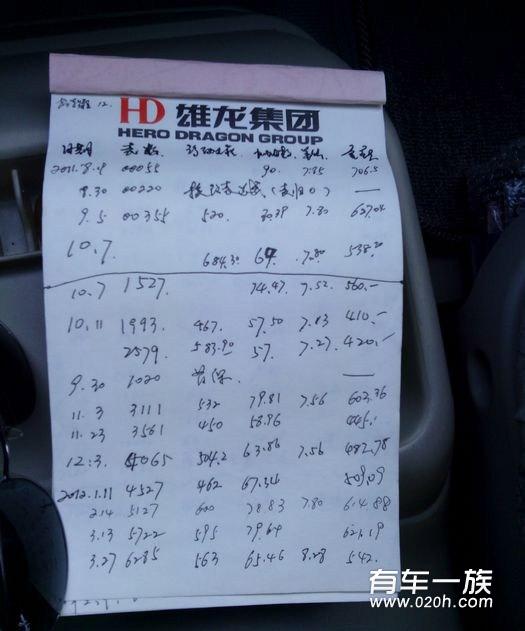 HD 雄龙集团
HERO DRAGON GROUP
日期 表数 单价 金额
2011.8.9 00055 90. 7.85 706.5
8.30 00220 (表归0) —
9.5 00355 520. 7.80 627.04
10.7. 684.30 69. 7.80. 538.20
10.7 1527. 74.47 7.52. 560.—
10.11 1993. 467. 57.50 7.13 410.—
2579. 583.90 57. 7.27. 420.—
9.30 1020 首保. —
11.3 3111 532 79.81 7.56 603.36
11.23 3561 450 58.86 445.—
12.3. 4065 504.2 63.86 7.56 482.78
2012.1.11 4527 462 67.34 509.09
2.14 5127 600 78.83 7.80 614.88
3.13 5722 595 79.64 621.19
3.27 6285 563 65.46 8.28 542.
有车一族
www.020h.com